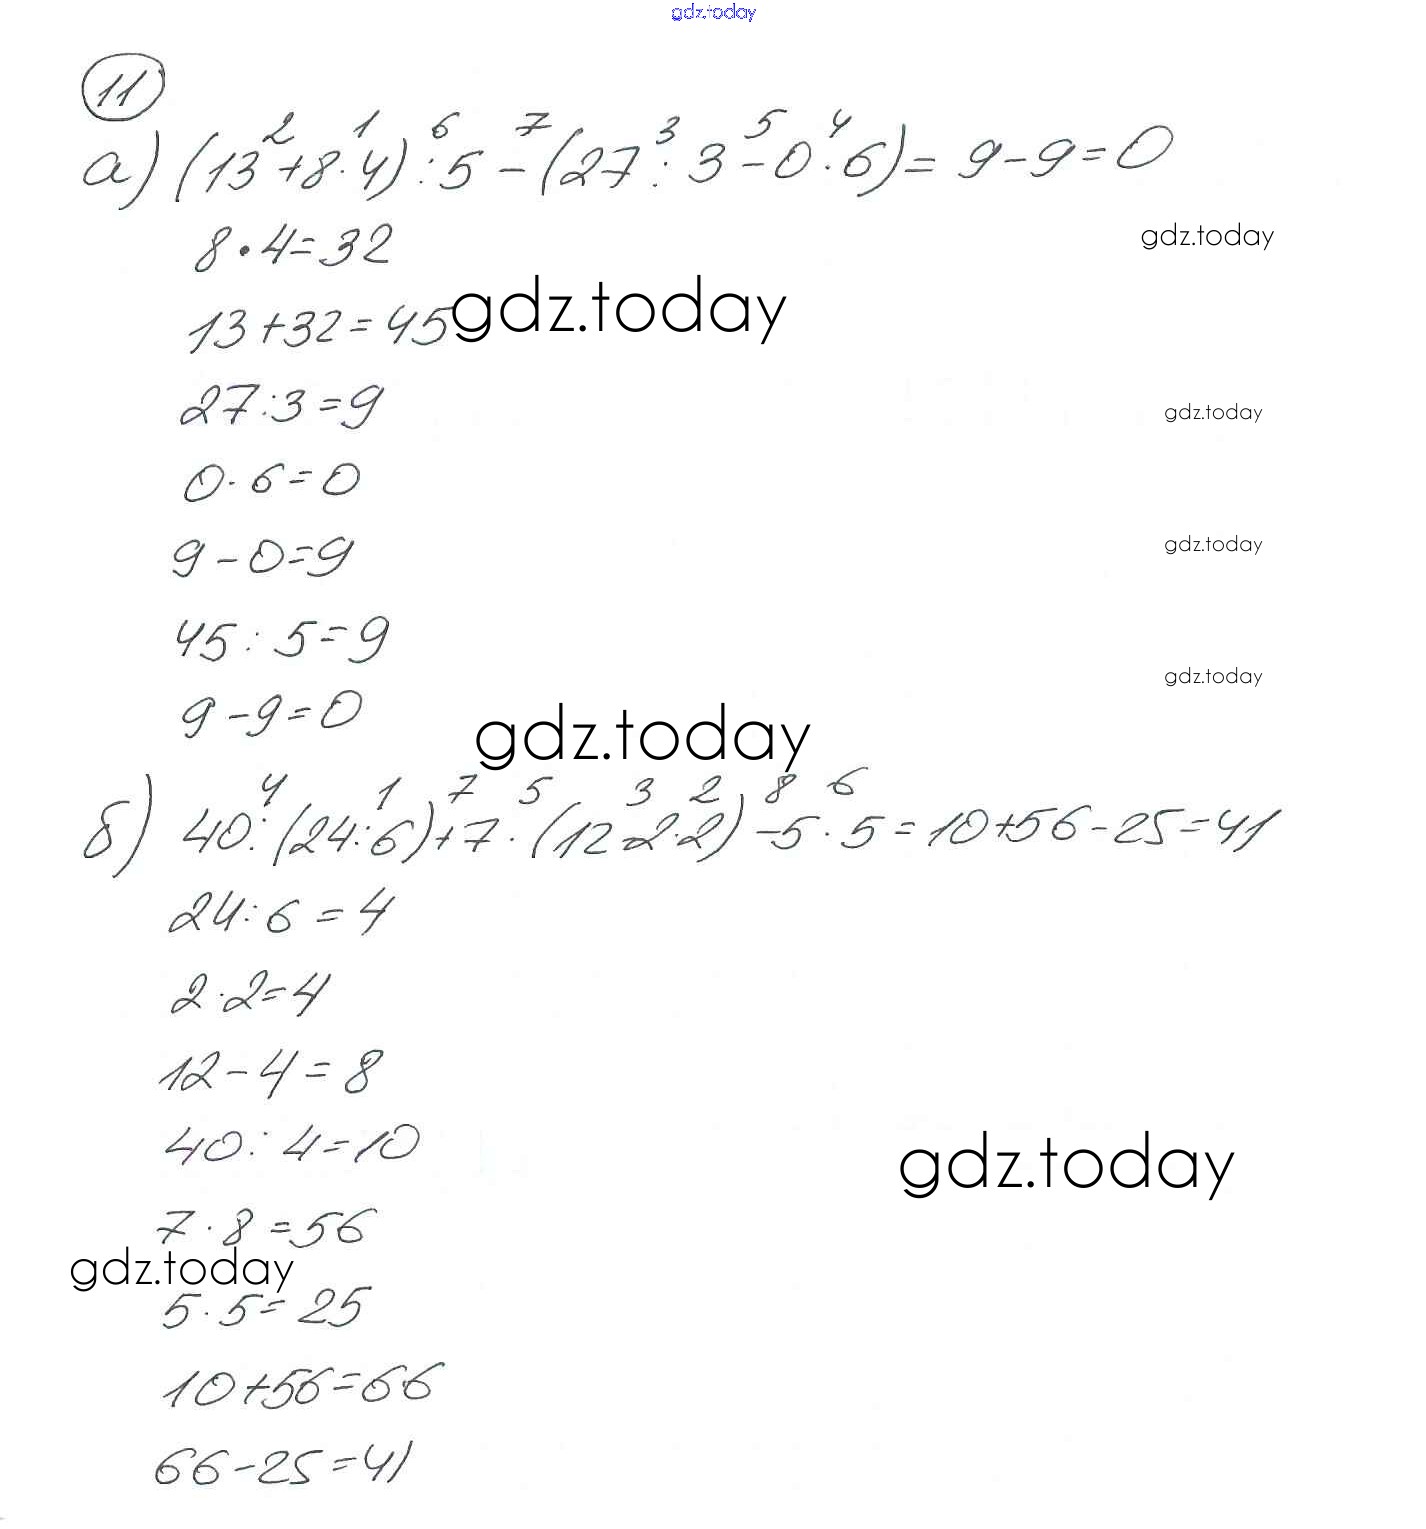 gdz.today
11
2 1 6 7 3 5 4
а) (13+8·4):5-(27:3-0·6)=9-9=0
8·4=32
gdz.today
13+32=45
gdz.today
27:3=9
gdz.today
0·6=0
9-0=9
gdz.today
45:5=9
gdz.today
9-9=0
gdz.today
4 1 7 5 3 2 8 6
б) 40:(24:6)+7·(12-2·2)-5·5=10+56-25=41
24:6=4
2·2=4
12-4=8
40:4=10
gdz.today
7·8=56
gdz.today
5·5=25
10+56=66
66-25=41